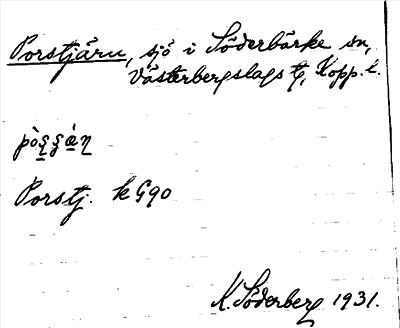 Porstjärn, sjö i Söderbärke sn,
Västerbergslags tg, Kopp. l.
Porstj. k G90
K. Söderberg 1931.